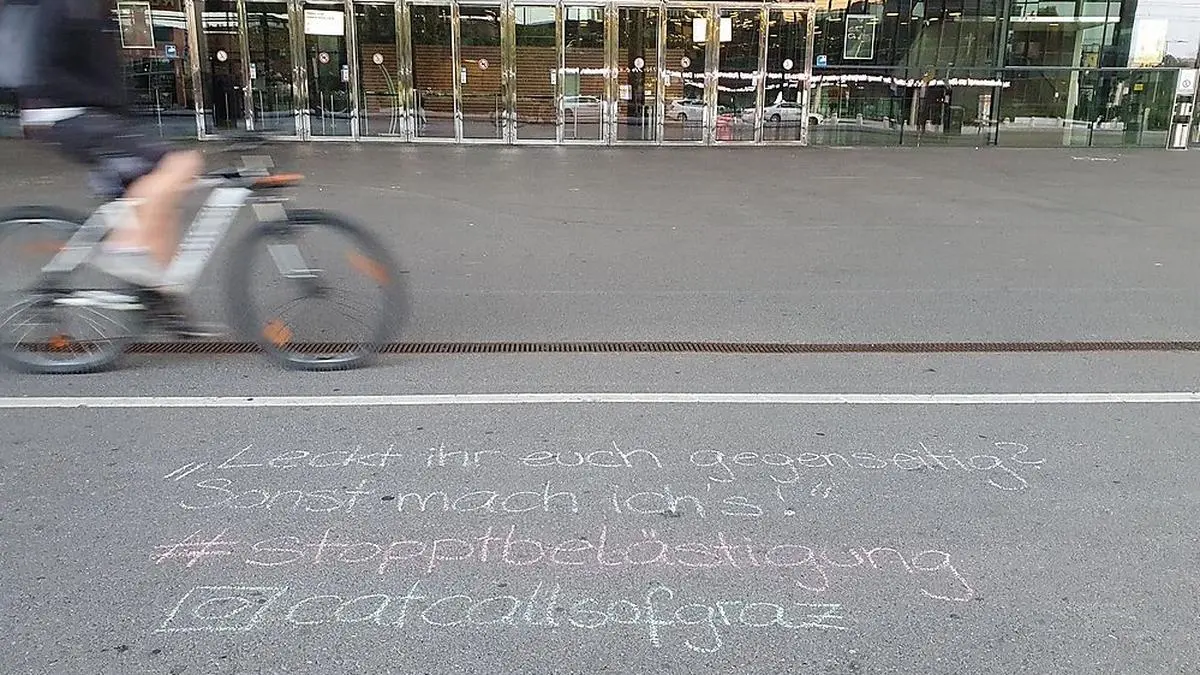 „Leckt ihr euch gegenseitig?
Sonst mach ich's!“
#stopptbelästigung
catcallsofgraz